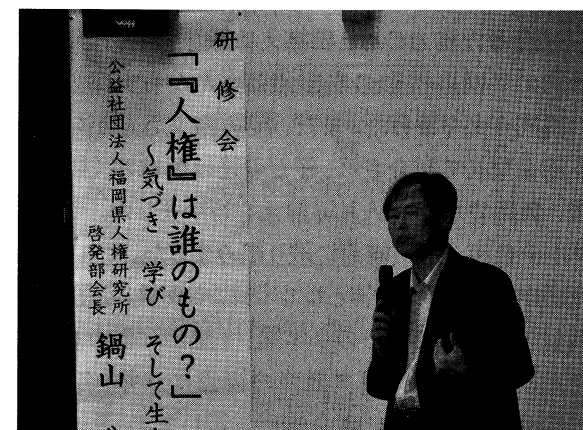 研修会
「『人権』は誰のもの？」
～気づき 学び そして生
公益社団法人福岡県人権研究所
啓発部会長 鍋山